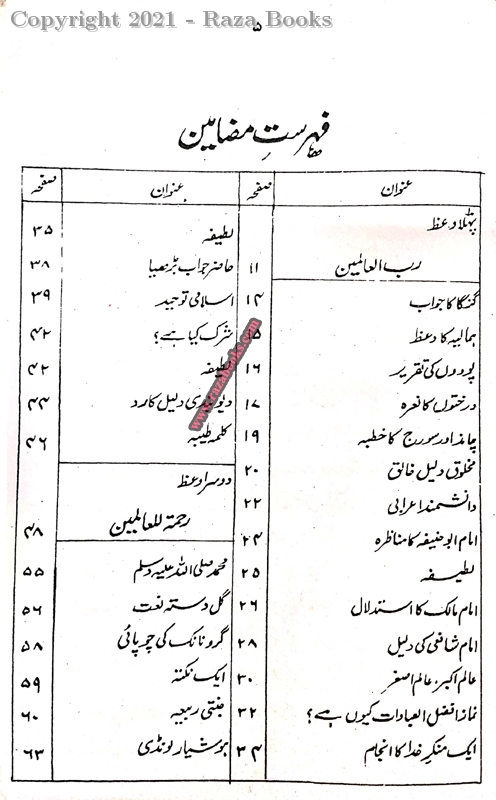 Copyright 2021 - Raza Books
۵
فہرستِ مضامین
عنوان صفحہ
پہلا وعظ
رب العالمین ۱۱
گنگا کا جواب ۱۴
ہمالیہ کا وعظ ۱۵
پودوں کی تقریر ۱۶
درختوں کا نعرہ ۱۷
چاند اور سورج کا خطبہ ۱۹
مخلوق دلیل خالق ۲۰
دانشمند اعرابی ۲۲
امام ابو حنیفہ کا مناظرہ ۲۴
لطیفہ ۲۵
امام مالک کا استدلال ۲۶
امام شافعی کی دلیل ۲۸
عالم اکبر، عالم اصغر ۳۰
نماز افضل العبادات کیوں ہے؟ ۳۲
ایک منکرِ خدا کا انجام ۳۴
عنوان صفحہ
لطیفہ ۳۵
حاضر جواب بڑھیا ۳۸
اسلامی توحید ۳۹
شرک کیا ہے؟ ۴۲
لطیفہ ۴۲
دیوبندی دلیل کا رد ۴۴
کلمہ طیبہ ۴۶
دوسرا وعظ
رحمۃ للعالمین ۴۸
محمد صلی اللہ علیہ وسلم ۵۵
گل دستہ نعت ۵۶
گرو نانک کی چوپائی ۵۸
ایک نکتہ ۵۹
جنتی ربیعہ ۶۰
ہوشیار لونڈی ۶۳
www.razabooks.com